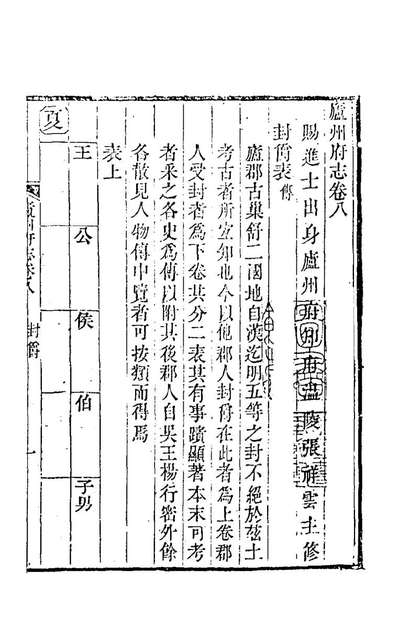 廬州府志卷八
賜進士出身廬州府知府晉陵張祥雲主修
封爵表 傳
廬郡古巢舒二國地自漢迄明五等之封不絕於茲土
考古者所宜知也今以他郡人封爵在此者爲上卷郡
人受封者爲下卷其分二表其有事蹟顯著本末可考
者采之各史爲傳以附其後郡人自吳王楊行密外餘
各散見人物傳中覽者可按類而得焉
表上
王 公 侯 伯 子男
夏
廬州府志卷八 封爵 一